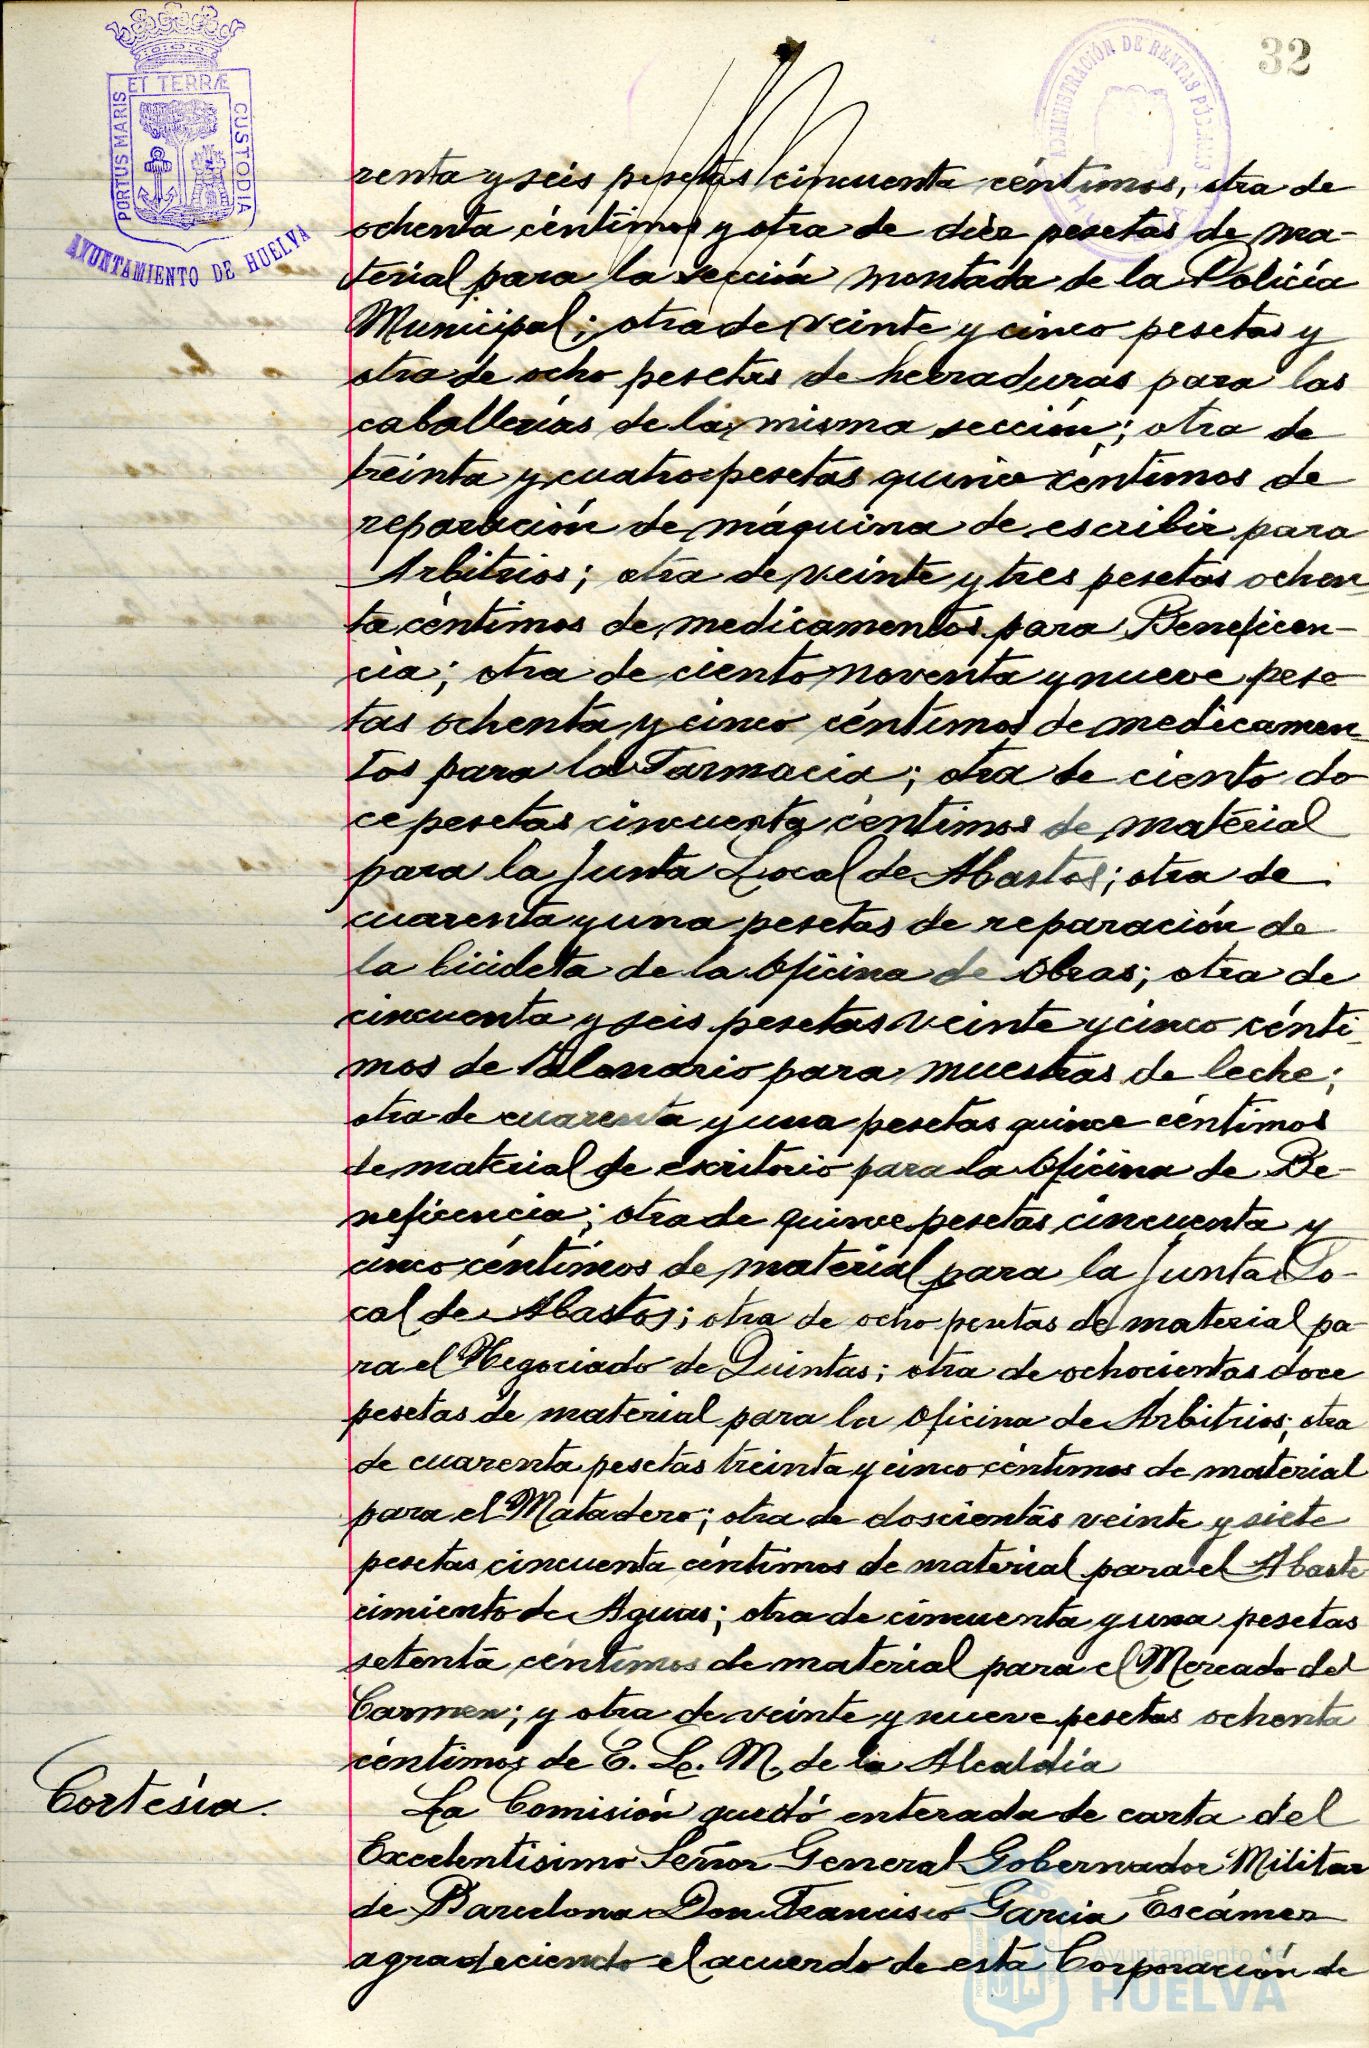 32
ET TERRÆ
PORTUS MARIS
CUSTODIA
AYUNTAMIENTO DE HUELVA
ADMINISTRACIÓN DE RENTAS PÚBLICAS
renta y seis pesetas cincuenta céntimos, otra de
ochenta céntimos y otra de diez pesetas de ma-
terial para la sección montada de la Policía
Municipal; otra de veinte y cinco pesetas y
otra de ocho pesetas de herraduras para las
caballerías de la misma sección; otra de
treinta y cuatro pesetas quince céntimos de
reparación de máquina de escribir para
Arbitrios; otra de veinte y tres pesetas ochen-
ta céntimos de medicamentos para Beneficen-
cia; otra de ciento noventa y nueve pese-
tas ochenta y cinco céntimos de medicamen-
tos para la Farmacia; otra de ciento do
ce pesetas cincuenta céntimos de material
para la Junta Local de Abastos; otra de
cuarenta y una pesetas de reparación de
la bicicleta de la Oficina de Obras; otra de
cincuenta y seis pesetas veinte y cinco cénti-
mos de Talonario para muestras de leche;
otra de cuarenta y una pesetas quince céntimos
de material de escritorio para la Oficina de Be-
neficencia; otra de quince pesetas cincuenta y
cinco céntimos de material para la Junta Lo-
cal de Abastos; otra de ocho pesetas de material pa-
ra el Negociado de Quintas; otra de ochocientas doce
pesetas de material para la Oficina de Arbitrios; otra
de cuarenta pesetas treinta y cinco céntimos de material
para el Matadero; otra de doscientas veinte y siete
pesetas cincuenta céntimos de material para el Abaste
cimiento de Aguas; otra de cincuenta y una pesetas
setenta céntimos de material para el Mercado del
Carmen; y otra de veinte y nueve pesetas ochenta
céntimos de E. L. M. de la Alcaldía
Cortesía.
La Comisión quedó enterada de carta del
Excelentísimo Señor General Gobernador Militar
de Barcelona Don Francisco García Escámez
agradeciendo el acuerdo de esta Corporación de
Ayuntamiento de
HUELVA